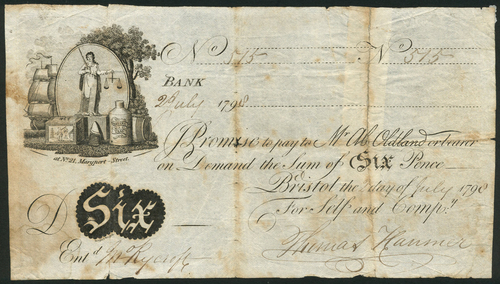 No 515 No 515
BANK
2d July 1798
at No. 21, Maryport Street.
I Promise to pay to Mr Ab Oldland or bearer
on Demand the Sum of SIX Pence
Bristol the day of July 1798
For Self and Compy
D SIX
Thomas Hanmer
Entd Jno